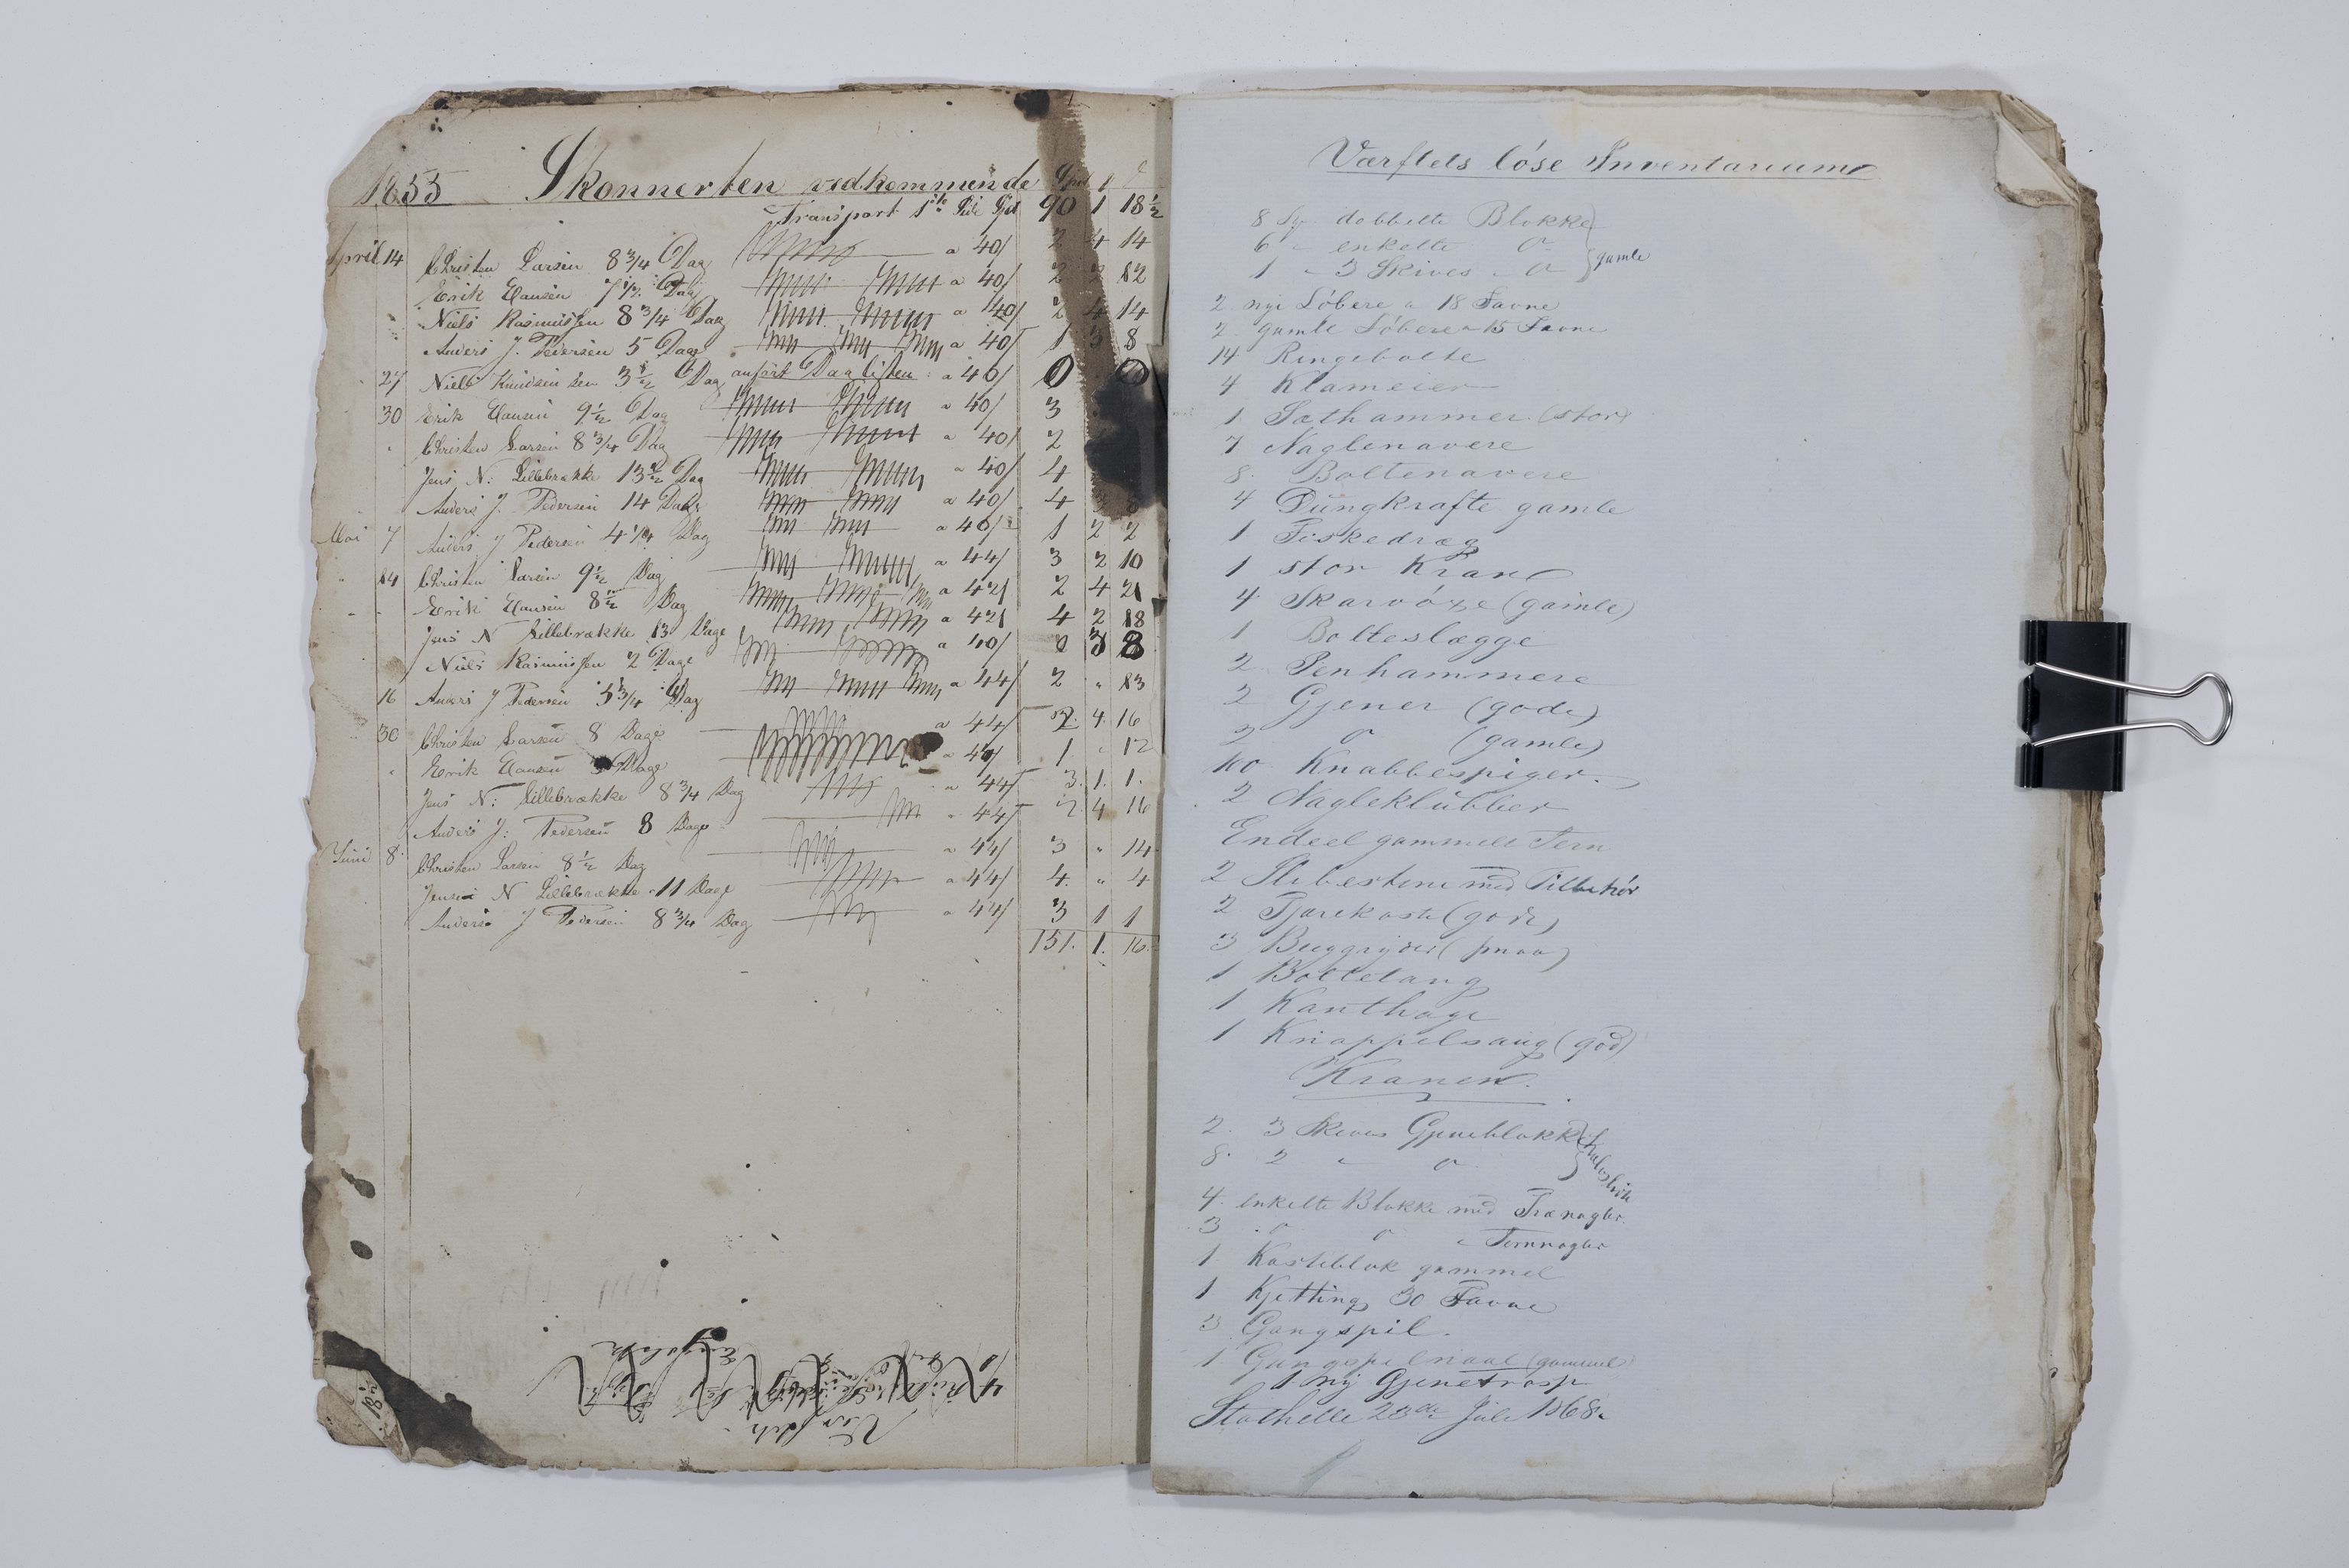 1855 Skonnerten vedkommende
Transport 1ste Side 90 1 18½
April 14 Christen Larsen 8 3/4 Dag a 40/ 2 4 14
Erik Hansen 7½ Dag a 40/ 2 12
Niels Rasmussen 8 3/4 Dag a 40/ 2 4 14
Anders J. Pedersen 5 Dage a 40/ 1 3 8
27 Niels Knudsen 3½ Dag anført Daglisten a 40/ 0 0
30 Erik Hansen 9½ Dag a 40/ 3
" Christen Larsen 8 3/4 Dag a 40/ 2
Jens N: Lillebrække 13½ Dag a 40/ 4
Anders J. Pedersen 14 Dage a 40/ 4 3 8
Mai 7 Anders J Pedersen 4 1/4 Dag a 40/ 1 2 2
14 Christen Larsen 9½ Dag a 44/ 3 2 10
" Erik Hansen 8½ Dag a 42/ 2 4 21
Jens N Lillebrække 13 Dage a 42/ 4 2 18
Niels Rasmussen 2 Dage a 40/ 0 3 8
16 Anders J Pedersen 5 3/4 Dag a 44/ 2 " 13
30 Christen Larsen 8 Dage a 44/ 2. 4. 16
" Erik Hansen Dage a 1 " 12
Jens N: Lillebrække 8 3/4 Dag a 44/ 3. 1. 1.
Anders J: Pedersen 8 Dage " 44/ 2 4 16
Juni 8. Christen Larsen 8½ Dag a 44/ 3 " 14
Jensen N Lillebrække 11 Dage a 44/ 4. " 4
Anders J Pedersen 8 3/4 Dag a 44/ 3 1 1
151. 1. 16.
Værftets löse Inventarium
8 dobbelte Blokke
6 " enkelte do
1 " 3 Skives " do gamle
2 nye Löbere a 18 Favne
2 gamle Löbere a 15 Favne
14 Ringebolte
4 Klameier
1 Sæthammer (stor)
7 Naglenavere
8. Boltenavere
4 Dunkrafte gamle
1 Fiskedræg
1 stor Kran
4 Skarvöxe (gamle)
1 Bolteslægge
2 Penhammere
2 Gjener (gode)
2 do (gamle)
100 Knabbespiger.
2 Nagleklubber
Endeel gammelt Jern
2 Slibestene med Tilbehör
2 Tjærekoste (gode)
3 (smaa)
1 Boltetang
1 Kanthage
1 Knappelsaug (god)
Kranen.
2. 3 Skives Gjeneblokke
8. 2 " do
4. enkelte Blokke med Trænagler.
3 do do " Jernnagler
1 Kasteblok gammel
1 Kjetting 30 Favne
3 Gangspil.
1 Gangspilnaal (gammel)
1 ny Gjenetrosse
Stathelle 23de Juli 1868.